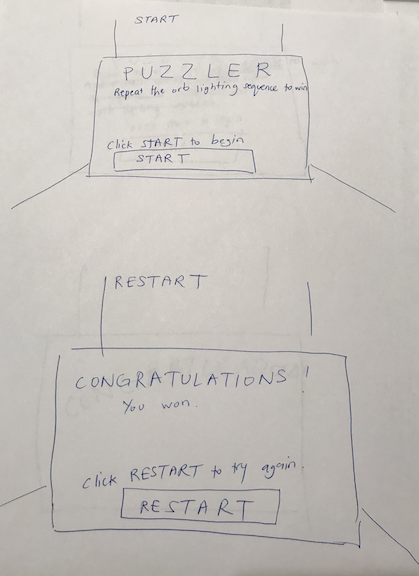 START
PUZZLER
Repeat the orb lighting sequence to win
Click START to begin
START
RESTART
CONGRATULATIONS !
You won.
Click RESTART to try again.
RESTART